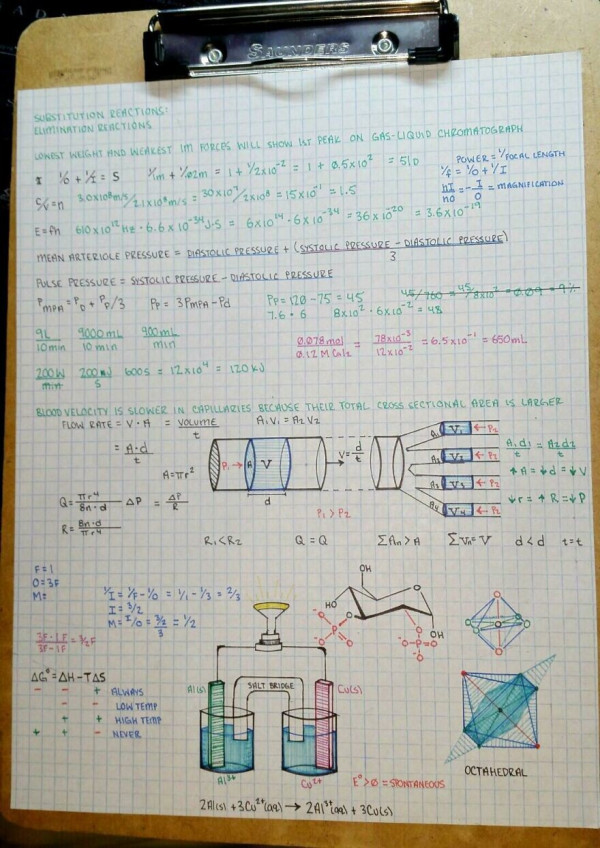 SAUNDERS
SUBSTITUTION REACTIONS:
ELIMINATION REACTIONS
LOWEST WEIGHT AND WEAKEST IM FORCES WILL SHOW 1ST PEAK ON GAS-LIQUID CHROMATOGRAPH
1/O + 1/I = S 1/1m + 1/.02m = 1 + 1/2x10⁻² = 1 + 0.5x10² = 51D
POWER = 1/FOCAL LENGTH
1/f = 1/O + 1/I
hI/hO = -I/O = MAGNIFICATION
3.0x10⁸m/s / 2.1x10⁸m/s = 30x10⁷/2x10⁸ = 15x10⁻¹ = 1.5
E=fh 610x10¹² hz · 6.6x10⁻³⁴ J·S = 6x10¹⁴ · 6x10⁻³⁴ = 36x10⁻²⁰ = 3.6x10⁻¹⁹
MEAN ARTERIOLE PRESSURE = DIASTOLIC PRESSURE + (SYSTOLIC PRESSURE - DIASTOLIC PRESSURE)/3
PULSE PRESSURE = SYSTOLIC PRESSURE - DIASTOLIC PRESSURE
PMPA = PD + PP/3 PP = 3PMPA - Pd PP = 120 - 75 = 45 45/760 = 45/8x10² = 0.09 = 9%
7.6 · 6 8x10² · 6x10⁻² = 48
9L/10min 9000mL/10min 900mL/min
0.078mol/0.12 M CaI2 = 78x10⁻³/12x10⁻² = 6.5x10⁻¹ = 650mL
200W/min 200J/S 600s = 12x10⁴ = 120kJ
BLOOD VELOCITY IS SLOWER IN CAPILLARIES BECAUSE THEIR TOTAL CROSS SECTIONAL AREA IS LARGER
FLOW RATE = V·A = VOLUME/t A₁V₁ = A₂V₂
= A·d/t
A=πr²
P₁ A V d
V=d/t
A₁ V₁ P₂
A₂ V₂ P₂
A₃ V₃ P₂
A₄ V₄ P₂
A₁d₁/t = A₂d₂/t
↑A = ↓d = ↓V
↓r = ↑R = ↓P
Q = πr⁴/8n·d ΔP = ΔP/R
R = 8n·d/πr⁴
P₁ > P₂
R₁<R₂ Q = Q ΣAn > A ΣVn = V d < d t=t
F=1
O=3F
M=
1/I = 1/F - 1/O = 1/1 - 1/3 = 2/3
I = 3/2
M = I/O = 3/2/3 = 1/2
3F·1F/3F-1F = 3/2F
ΔG° = ΔH - TΔS
- - + ALWAYS
- - LOW TEMP
+ + HIGH TEMP
+ + - NEVER
Al(s) SALT BRIDGE Cu(s)
Al³⁺ Cu²⁺
E°>0 = SPONTANEOUS
2Al(s) + 3Cu²⁺(aq) → 2Al³⁺(aq) + 3Cu(s)
OH
HO
O
OH
OCTAHEDRAL